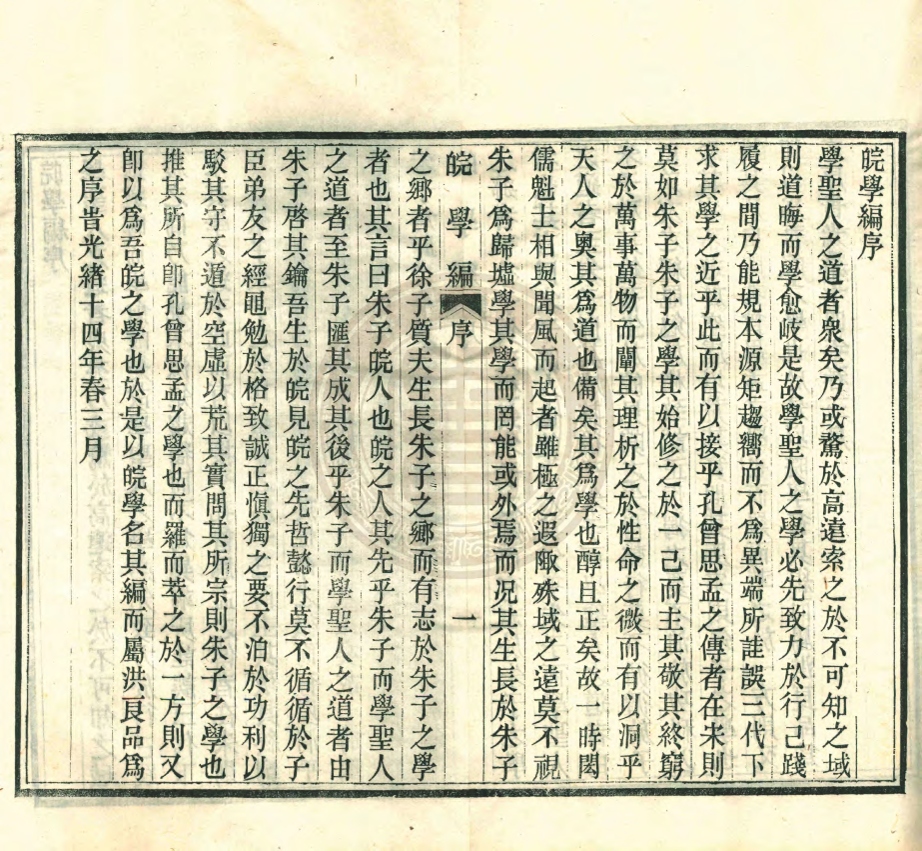 皖學編序
學聖人之道者衆矣乃或騖於高遠索之於不可知之域
則道晦而學愈岐是故學聖人之學必先致力於行己踐
履之間乃能規本源矩趨嚮而不爲異端所詿誤三代下
求其學之近乎此而有以接乎孔曾思孟之傳者在宋則
莫如朱子朱子之學其始修之於一己而主其敬其終窮
之於萬事萬物而闡其理析之於性命之微而有以洞乎
天人之奧其爲道也備矣其爲學也醇且正矣故一時閎
儒魁士相與聞風而起者雖極之遐陬殊域之遠莫不視
朱子爲歸墟學其學而罔能或外焉而況其生長於朱子
皖學編 序 一
之鄉者乎徐子質夫生長朱子之鄉而有志於朱子之學
者也其言曰朱子皖人也皖之人其先乎朱子而學聖人
之道者至朱子匯其成其後乎朱子而學聖人之道者由
朱子啓其鑰吾生於皖見皖之先哲懿行莫不循循於子
臣弟友之經黽勉於格致誠正愼獨之要不汨於功利以
駁其守不遁於空虛以荒其實問其所宗則朱子之學也
推其所自卽孔曾思孟之學也而羅而萃之於一方則又
卽以爲吾皖之學也於是以皖學名其編而屬洪良品爲
之序旹光緒十四年春三月